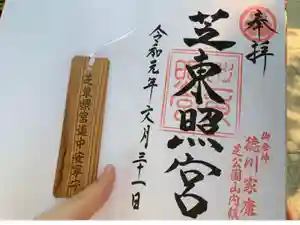 奉拝
御祭神
徳川家康
芝公園山内鎮
芝東照宮
令和元年
月三十一日
芝東照宮道中安寧守